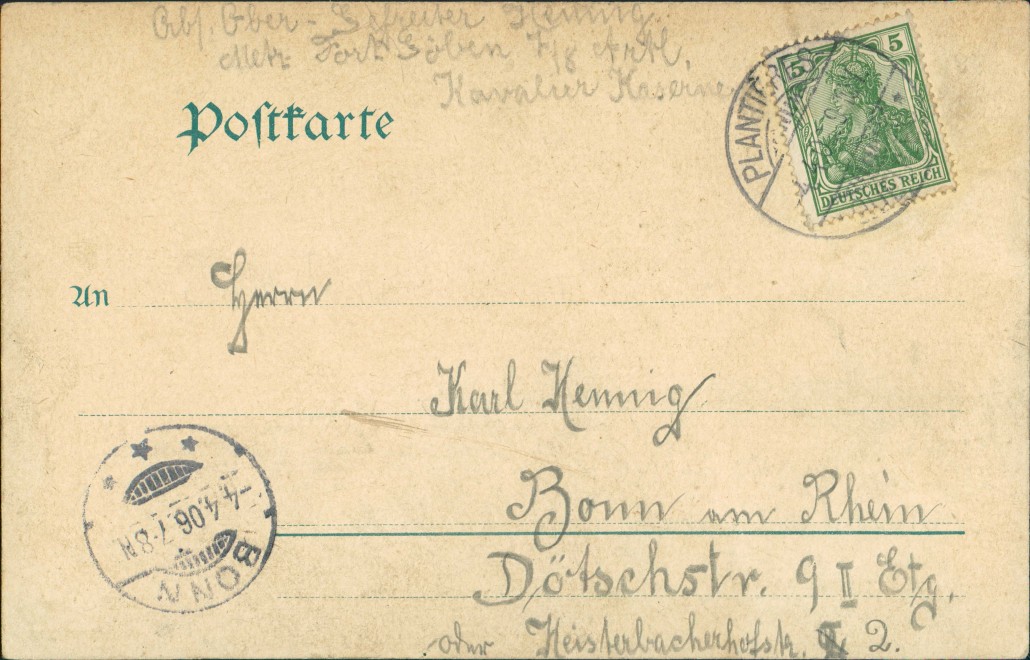 Abs. Ober-Gefreiter Hennig.
Metz Fort Göben, 7/8 Artl,
Kavalier Kaserne
Postkarte
PLANTIERES
5 5
DEUTSCHES REICH
An Herrn
Karl Hennig
Bonn am Rhein
Dötschstr. 9 II Etg.
oder Heisterbacherhofstr. 2.
4.4.06.7-8N
BONN